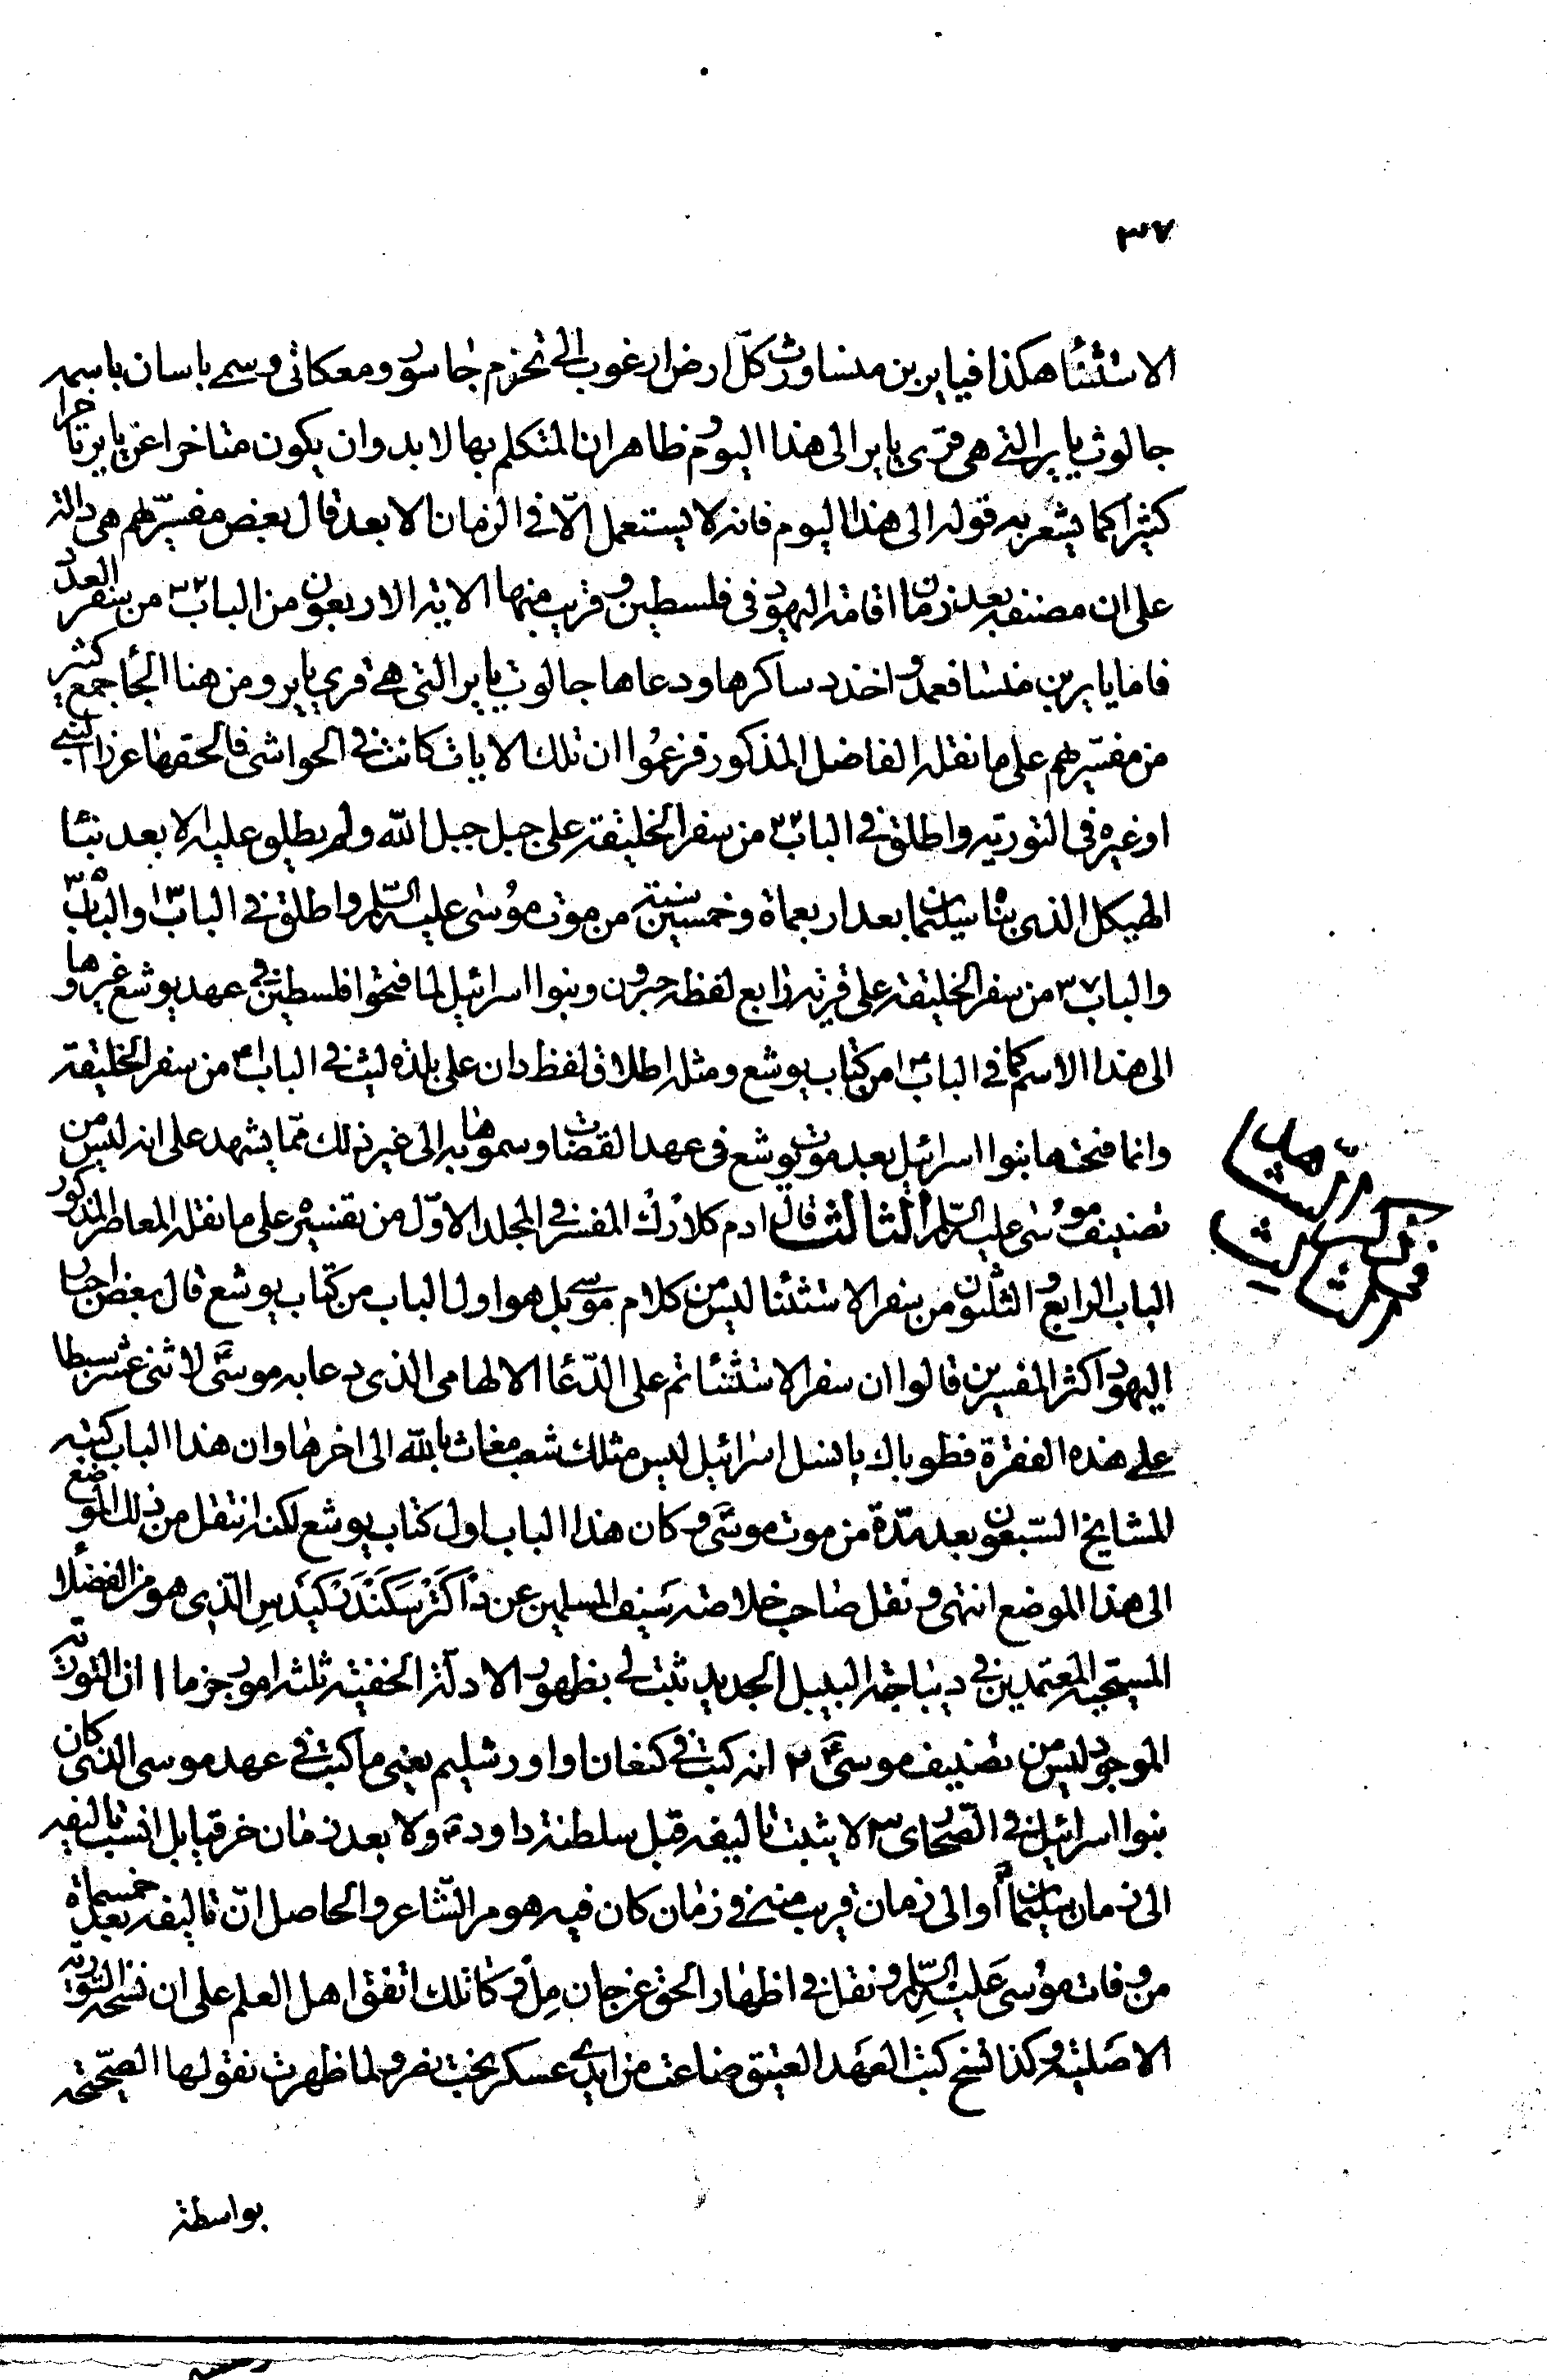 ٣٧
الاستثنا هكذا فيايربن منسا ورث كلّ ارض ارغوب الى تخوم جاسور ومعكاتى وسمى باسان باسمه
جالوث ياير التى هى قرى ياير الى هذا اليوم وظاهر ان المتكلم بها لابد وان يكون متاخرا عن ياير تاخرا
كثيرا كما يشعر به قوله الى هذا اليوم فانه لا يستعمل الّا فى الزمان الابعد قال بعض مفسّريهم هى دالة
على ان مصنفه بعد زمان اقامة اليهود فى فلسطين وقريب منها الاية الاربعون من الباب ٣٢ من سفر العدد
فاما ياير بن منسا فعمد واخذ دساكرها ودعاها جالوث ياير التى هى قرى ياير ومن هنا الجا جمع كثير
من مفسّريهم على ما نقله الفاضل المذكور فزعموا ان تلك الايات كانت فى الحواشى فالحقها عزرا النبى
او غيره فى التورية واطلق فى الباب ٢٢ من سفر الخليقة على جبل جبل الله ولم يطلق عليه الا بعد بنا
الهيكل الذى بناه سليمان بعد اربعماة وخمسين سنة من موت موسى عليه السّلم واطلق فى الباب ١٣ والباب ٣٥
والباب ٣٧ من سفر الخليقة على قرية رابع لفظة حبرون وبنوا اسرائيل لما فتحوا فلسطين فى عهد يوشع غيروها
الى هذا الاسم كما فى الباب ١٤ من كتاب يوشع ومثله اطلاق لفظ دان على بلدة ليث فى الباب ١٤ من سفر الخليقة
وانما فتحها بنوا اسرائيل بعد موت يوشع فى عهد القضات وسموها به الى غير ذلك ممّا يشهد على انه ليس من
تصنيف موسى عليه السّلم الثالث قال ادم كلارك المفسر فى المجلد الاوّل من تفسيره على ما نقله المعاصر المذكور
الباب الرابع والثلثون من سفر الاستثنا ليس من كلام موسى بل هو اول الباب من كتاب يوشع قال بعض احبار
اليهود اكثر المفسرين قالوا ان سفر الاستثنا تم على الدّعا الالهامى الذى دعا به موسى لاثنى عشر سبطا
على هذه الفقرة فطوباك يا نسل اسرائيل ليس مثلك شعب مغاث بالله الى اخرها وان هذا الباب كتبه
المشايخ السّبعون بعد مدّة من موت موسى وكان هذا الباب اول كتاب يوشع لكنه انتقل من ذلك الموضع
الى هذا الموضع انتهى ونقل صاحب خلاصة سيف المسلمين عن داكتر سكندر كيدس الّذى هو من الفضلا
المسيحية المعتمدين فى ديباجة البيبل الجديد ثبت لى بظهور الادلّة الخفية ثلثة امور جزما ١ ان التورية
الموجود ليس من تصنيف موسى ٢ انه كتب فى كنعان او اورشليم يعنى ما كتب فى عهد موسى الذى كان
بنوا اسرائيل فى الصّحارى ٣ لا يثبت تاليفه قبل سلطنة داود ولا بعد زمان خرقيا بل انسب تاليفه
الى زمان سليمان او الى زمان قريب منه فى زمان كان فيه هومر الشّاعر والحاصل انّ تاليفه بعد خمسماة
من وفات موسى عليه السّلم ونقل فى اظهار الحق عن جان ملنر كاتلك اتفق اهل العلم على ان نسخة التورية
الاصلية وكذا نسخ كتب العهد العتيق ضاعت من ايدى عسكر بخت نصر ولما ظهرت نقولها الصّحيحة
بواسطة